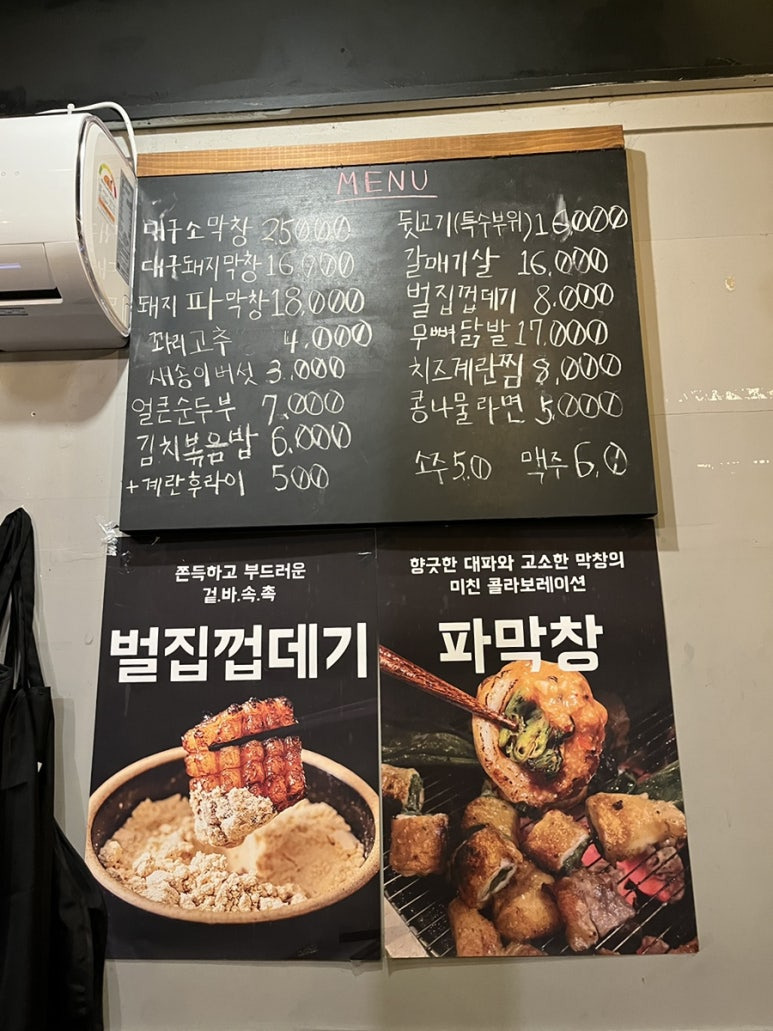 MENU
대구소막창 25,000
대구돼지막창 16,000
돼지 파막창 18,000
꽈리고추 4,000
새송이버섯 3,000
얼큰순두부 7,000
김치볶음밥 6,000
+계란후라이 500
뒷고기(특수부위) 16,000
갈매기살 16,000
벌집껍데기 8,000
무뼈닭발 17,000
치즈계란찜 8,000
콩나물라면 5,000
소주 5.0 맥주 6.0
쫀득하고 부드러운
겉.바.속.촉
벌집껍데기
향긋한 대파와 고소한 막창의
미친 콜라보레이션
파막창